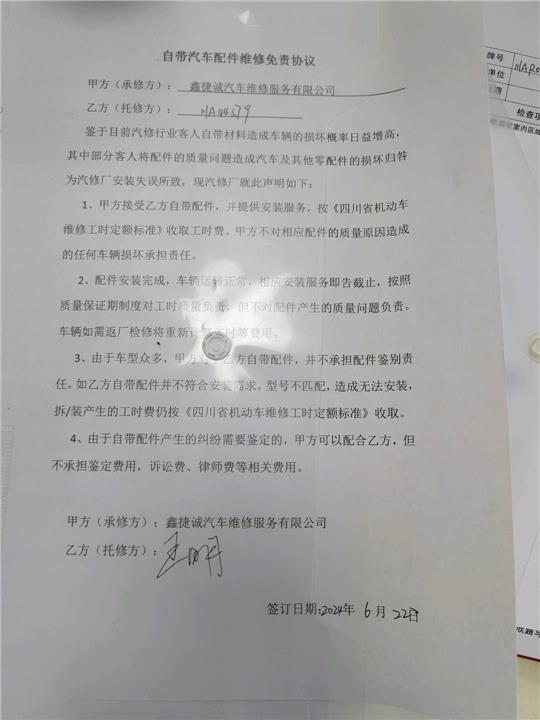 自带汽车配件维修免责协议
甲方（承修方）：鑫捷诚汽车维修服务有限公司
乙方（托修方）：
鉴于目前汽修行业客人自带材料造成车辆的损坏概率日益增高，
其中部分客人将配件的质量问题造成汽车及其他零配件的损坏归咎
为汽修厂安装失误所致，现汽修厂就此声明如下：
1、甲方接受乙方自带配件，并提供安装服务，按《四川省机动车
维修工时定额标准》收取工时费。甲方不对相应配件的质量原因造成
的任何车辆损坏承担责任。
2、配件安装完成，车辆运转正常，相应安装服务即告截止，按照
质量保证期制度对工时质量负责，但不对配件产生的质量问题负责。
车辆如需返厂检修将重新计算工时等费用。
3、由于车型众多，甲方对乙方自带配件，并不承担配件鉴别责
任。如乙方自带配件并不符合安装需求，型号不匹配，造成无法安装，
拆/装产生的工时费仍按《四川省机动车维修工时定额标准》收取。
4、由于自带配件产生的纠纷需要鉴定的，甲方可以配合乙方，但
不承担鉴定费用，诉讼费、律师费等相关费用。
甲方（承修方）：鑫捷诚汽车维修服务有限公司
乙方（托修方）：
签订日期：2024年 6月 22日
牌号
单位
检查项